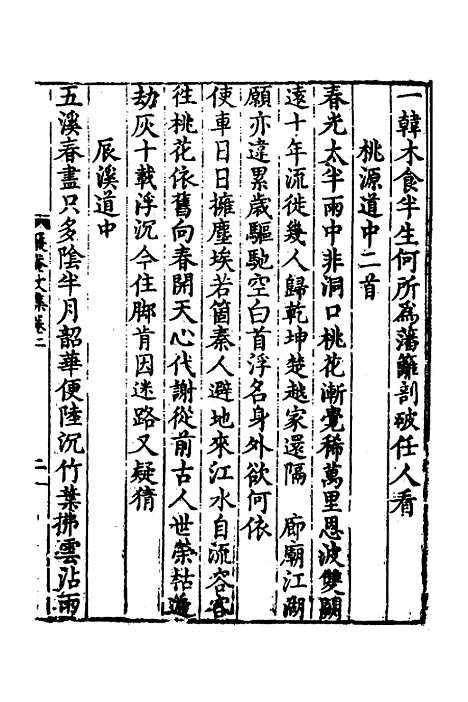 一韓木食半生何所為藩籬剖破任人看
桃源道中二首
春光太半雨中非洞口桃花漸覺稀萬里恩波雙闕
遠十年流徙幾人歸乾坤楚越家還隔　廊廟江湖
願亦違累歲驅馳空白首浮名身外欲何依
使車日日擁塵埃若箇秦人避地來江水自流容容
往桃花依舊向春開天心代謝從前古人世榮枯
劫灰十載浮沉今住脚肯因迷路又疑猜
辰溪道中
五溪春盡只多陰半月韶華便陸沉竹葉拂雲沾雨
文集卷二
二